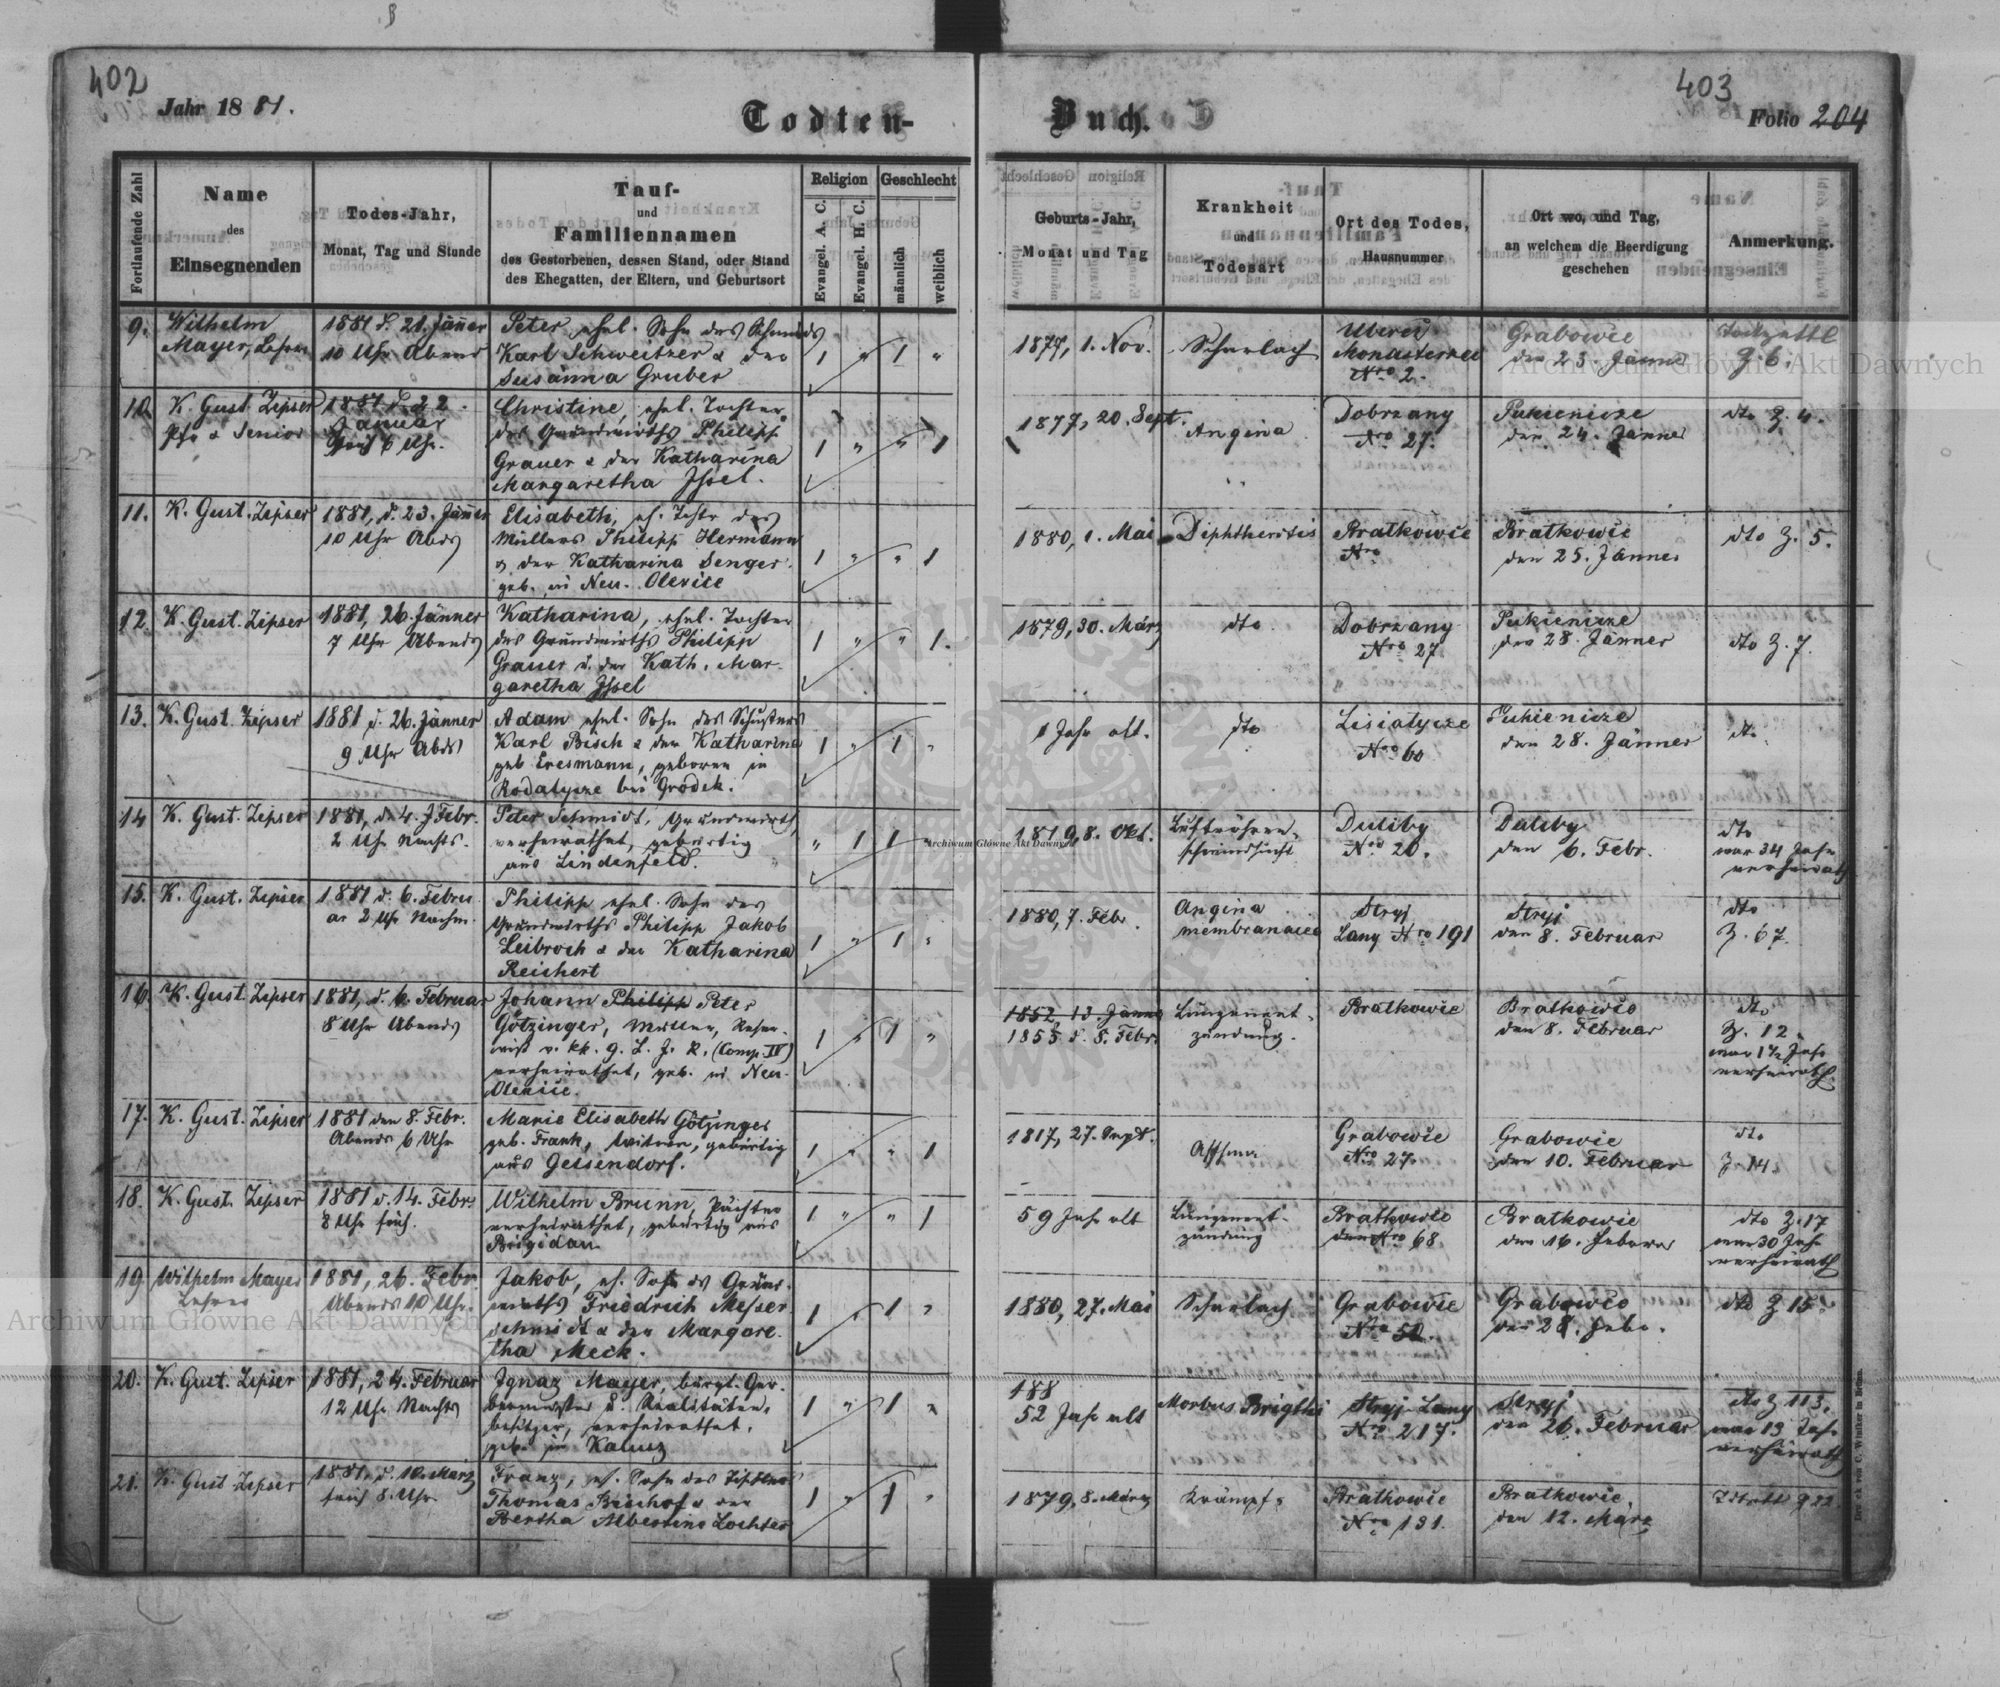 402
Jahr 1881.
Todten-
Buch.
403
Folio 204
Fortlaufende Zahl
Name
des
Einsegnenden
Todes-Jahr,
Monat, Tag und Stunde
Tauf-
und
Familiennamen
des Gestorbenen, dessen Stand, oder Stand
des Ehegatten, der Eltern, und Geburtsort
Religion
Evangel. A. C.
Evangel. H. C.
Geschlecht
männlich
weiblich
Geburts-Jahr,
Monat und Tag
Krankheit
und
Todesart
Ort des Todes,
Hausnummer
Ort wo, und Tag,
an welchem die Beerdigung
geschehen
Anmerkung.
9.
Wilhelm
Mayer, Lehrer
1881 d. 21. Jänner
10 Uhr Abends
Peter, ehel. Sohn des Schmieds
Karl Schweitzer & der
Susanna Gruber
1 " 1 "
1877, 1. Nov.
Scharlach
Monasterzec
Nro 2.
Grabowce
den 23. Jänner
Z. 6.
10
K. Gust. Zipser
Pfr & Senior
1881 d. 22.
Januar
6 Uhr.
Christine, ehel. Tochter
des Grundwirths Philipp
Grauer & der Katharina
Margaretha Issel.
1 " " 1
1877, 20. Sept.
Angina
Dobrzany
Nro 27.
Pukienicze
den 24. Jänner
dto Z. 4.
11.
K. Gust. Zipser
1881, d. 23. Jänner
10 Uhr Abds
Elisabeth, eh. Tochtr des
Müllers Philipp Hermann
& der Katharina Senger
geb. in Neu-Olexice
1 " " 1
1880, 1. Mai
Diphtheritis
Bratkowce
Nro
Bratkowce
den 25. Jänner
dto Z. 5.
12.
K. Gust. Zipser
1881, 26. Jänner
7 Uhr Abends
Katharina, ehel. Tochter
des Grundwirths Philipp
Grauer u. der Kath. Mar-
garetha Issel
1 " " 1.
1879, 30. März
dto
Dobrzany
Nro 27
Pukienicze
den 28. Jänner
dto Z. 7.
13.
K. Gust. Zipser
1881 d. 26. Jänner
9 Uhr Abds
Adam ehel. Sohn des Schusters
Karl Bisch & der Katharina
geb Eresmann, geboren in
Rodatycze bei Grodek.
1 " 1 "
1 Jahr alt.
dto
Lisiatycze
Nro 60
Pukienicze
den 28. Jänner
dto
14
K. Gust. Zipser
1881, d. 4. Febr.
2 Uhr Nachts.
Peter Schmidt, Grundwirth,
verheirathet, gebürtig
aus Lindenfeld.
" 1 1 "
1819, 8. Okt.
Luftröhren-
schwindsucht
Duliby
Nro 20.
Duliby
den 6. Febr.
dto
war 34 Jahre
verheirath
15.
K. Gust. Zipser
1881 d. 6. Febru-
ar 2 Uhr Nachm.
Philipp ehel. Sohn des
Grundwirths Philipp Jakob
Leibroch & der Katharina
Reichert
1 " 1 "
1880, 7. Febr.
Angina
membranacea
Stryj
Lany Nro 191
Stryj
den 8. Februar
dto
Z. 67.
16.
K. Gust. Zipser
1881, d. 6. Februar
8 Uhr Abends
Johann Philipp Peter
Götzinger, Müller, Reser-
vist v. kk. g. L. J. R. (Comp. IV)
verheirathet, geb. in Neu-
Olexice.
1 " 1 "
1852, 13. Jänner
1855 d. 5. Febr.
Lungenent-
zündung.
Bratkowce
Bratkowce
den 8. Februar
dto
Z. 12
war 1½ Jahr
verheirath.
17.
K. Gust. Zipser
1881 den 8. Febr.
Abends 6 Uhr
Marie Elisabeth Götzinger
geb. Frank, Witwe, gebürtig
aus Gelsendorf.
1 " " 1
1817, 27. Sept.
Asthma
Grabowce
Nro 27.
Grabowce
den 10. Februar
dto
Z. 14.
18.
K. Gust. Zipser
1881 d. 14. Febr.
8 Uhr früh.
Wilhelm Brunn, Pächter
verheirathet, gebürtig aus
Brigidau
1 " " 1
59 Jahr alt
Lungenent-
zündung
Bratkowce
Nro 68
Bratkowce
den 16. Februar
dto Z. 17
war 30 Jahr
verheirath
19
Wilhelm Mayer
Lehrer
1881, 26. Febr.
Abends 10 Uhr.
Jakob, eh. Sohn des Grund-
wirths Friedrich Messer
schmidt & der Margare-
tha Meck.
1 " 1 "
1880, 27. Mai
Scharlach
Grabowce
Nro 50.
Grabowce
den 28. Febr.
dto Z. 15.
20.
K. Gust. Zipser
1881, 24. Februar
12 Uhr Nachts
Ignaz Mayer, bürgl. Ger-
bermeister u. Realitäten-
besitzer, verheirathet,
geb. in Kalusz
1 " 1 "
188
52 Jahr alt
Morbus Brigthi
Stryj-Lany
Nro 217.
Stryj
den 26. Februar
dto Z 113.
war 19 Jahr
verheirath
21.
K. Gust. Zipser
1881, d. 10. März
früh 8. Uhr
Franz, eh. Sohn des Tischlers
Thomas Bischof & der
Bertha Albertine Lochter
1 " 1 "
1879, 8. März
Krämpfe
Bratkowce
Nro 131.
Bratkowce,
den 12. März
Z 22.
Druck von C. Winiker in Brünn.
Archiwum Główne Akt Dawnych
Archiwum Główne Akt Dawnych
Archiwum Główne Akt Dawnych